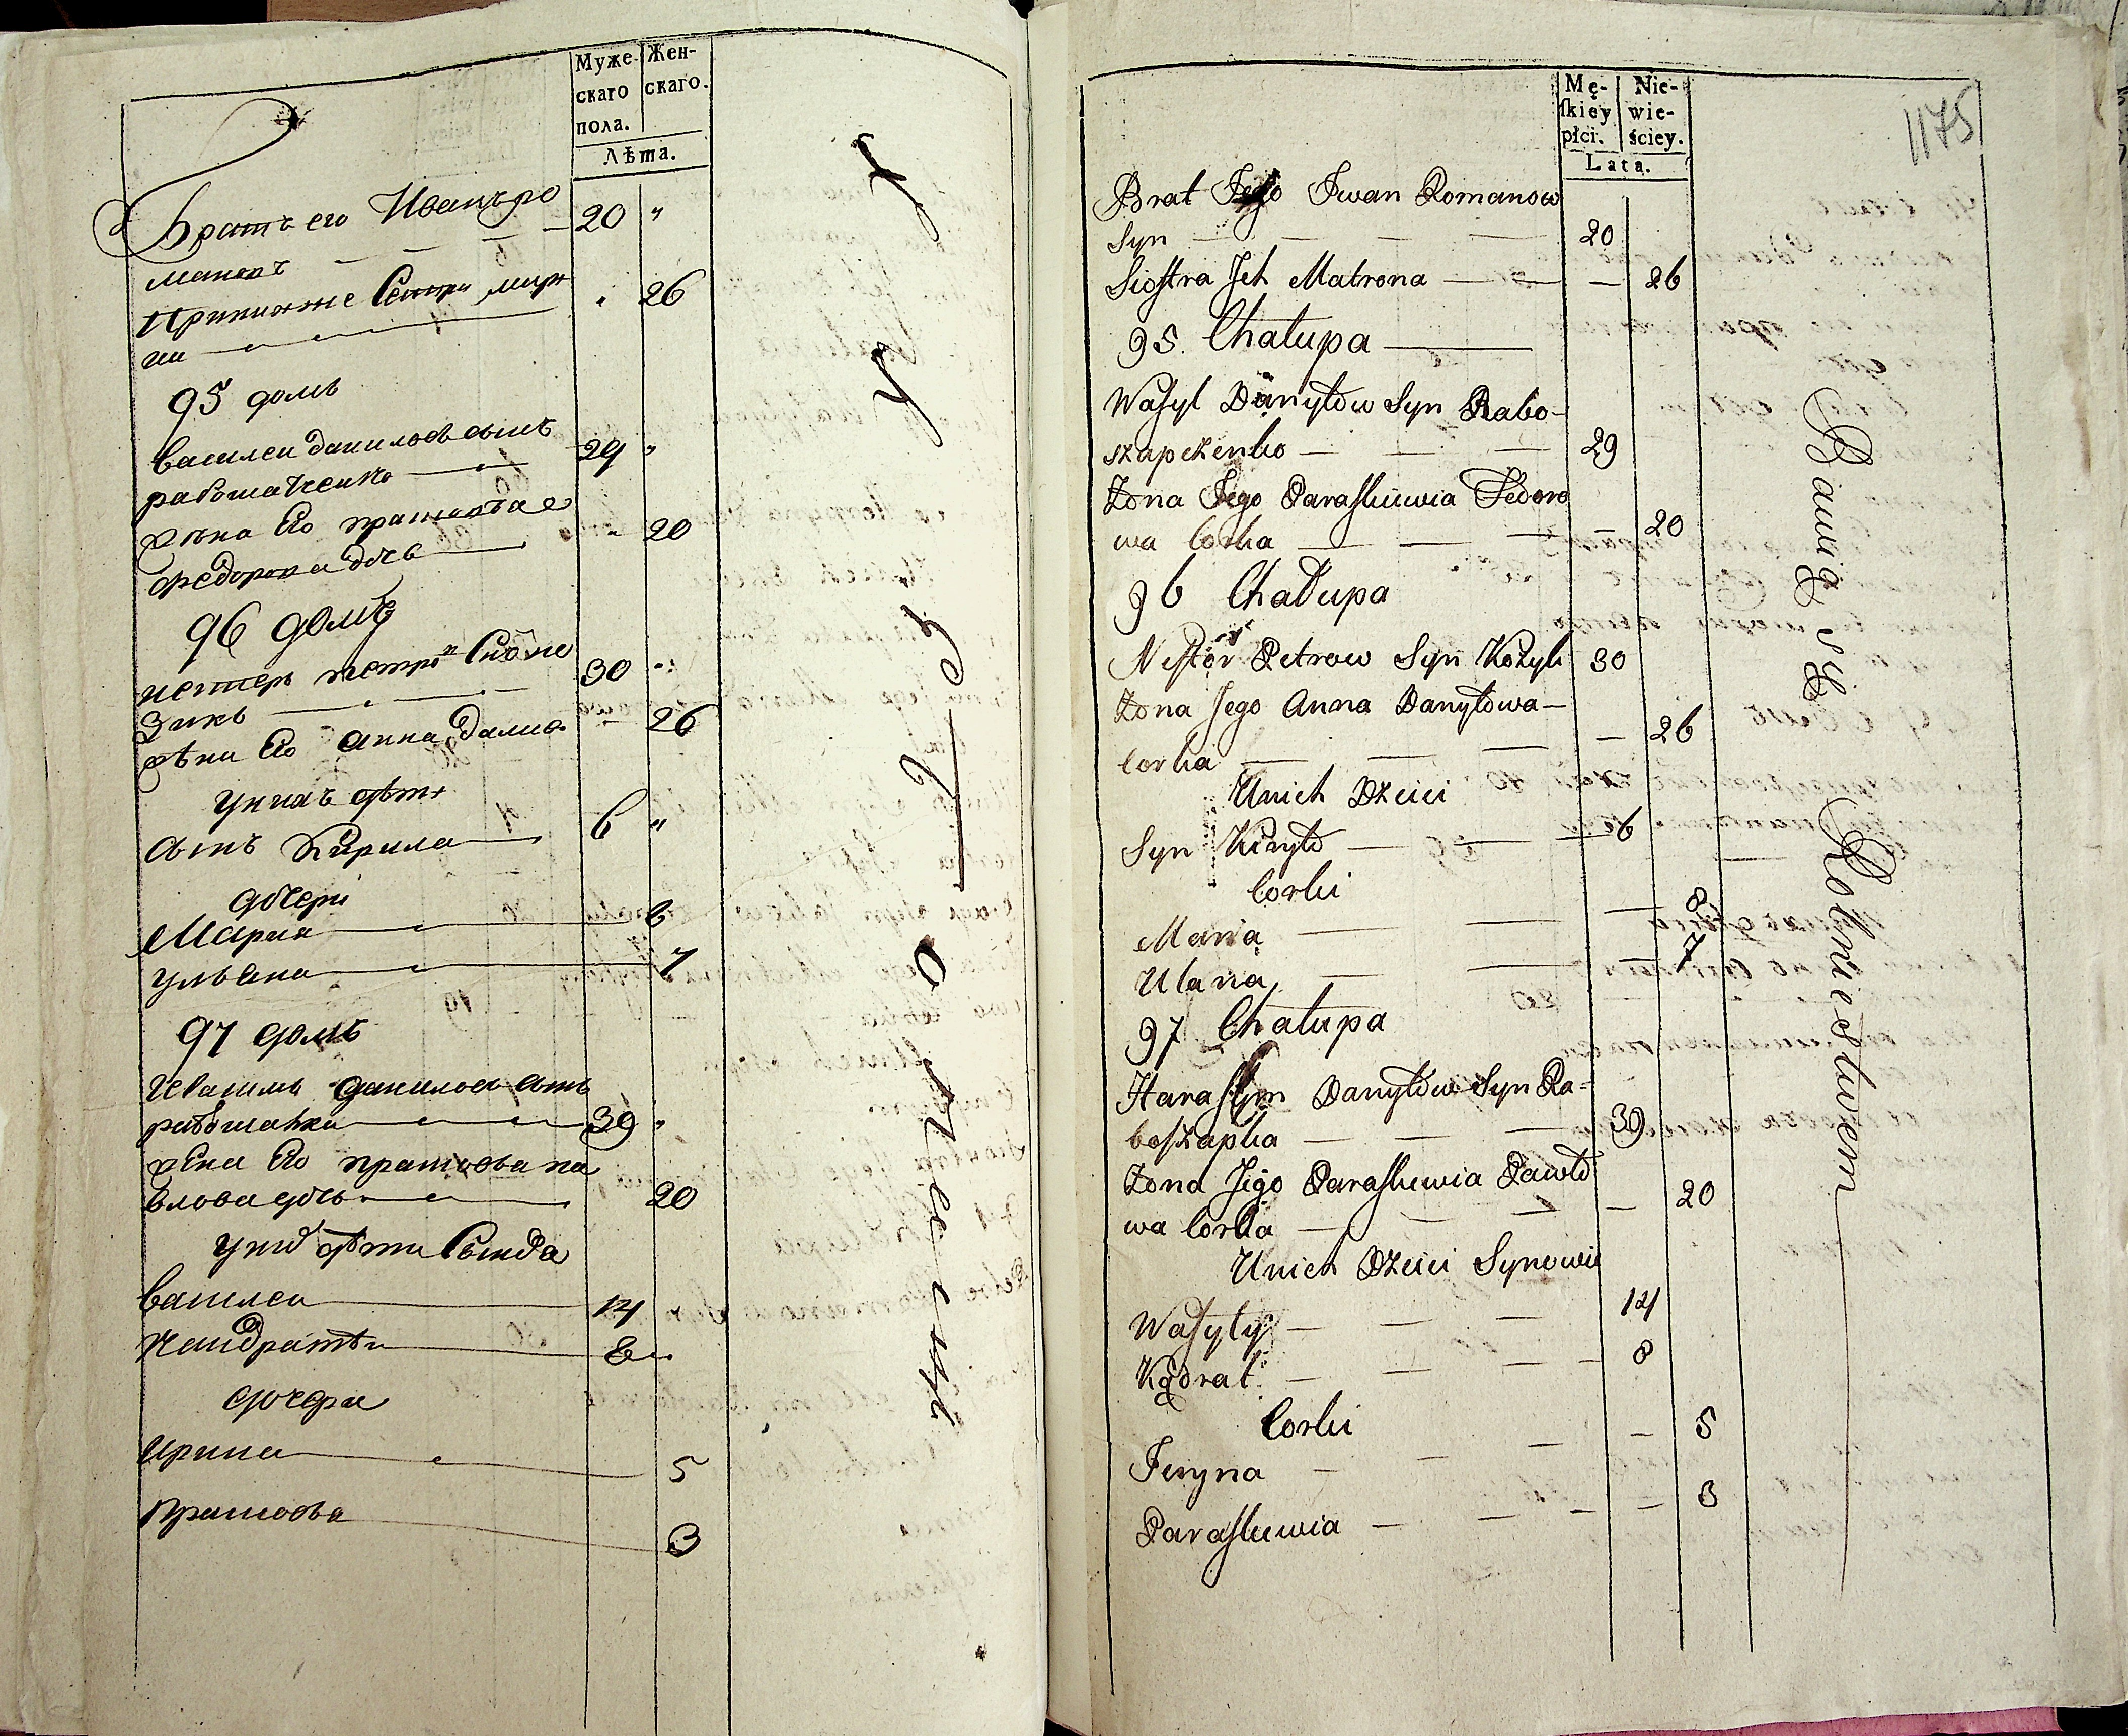 Муже-
скаго
пола.
Жен-
скаго.
Лѣта.
Братъ его Иванъ ро
мановъ 20 "
26
95 домъ
василеи даниловъ сынъ
рабошапченко 29 "
жена его прасковѣя
федорова дочь 20
96 домъ
нестеръ петровъ Сынъ
30
жена Его анна данило 26
у нихъ дѣти
сынъ Кирила 6 "
дочери
Мария 8
ульяна 7
97 домъ
даниловъ сынъ
рабошапка 39 "
жена Его прасковья па
влова дочь 20
у них дѣти Сыновя
василеи 14
кандратеи 8
дочери
ирина 5
прасковя 3
Mę-
skiey
płci.
Nie-
wie-
ściey.
Lata.
1175
Brat Jego Iwan Romanow
Syn 20
Siostra Ich Matrona 26
95. Chałupa
Wasyl Danyłow Syn Rabo-
szapczenko 29
Żona Jego Paraskiewia Fedoro
wa Corka 20
96 Chałupa
Nestor Petrow Syn Kozyk 30
Żona Jego Anna Danyłowa
Corka 26
U nich Dzieci
Syn Kiryło 6
Corki
Maria 8
Ulana 7
97 Chałupa
Harasym Danyłow Syn Ra-
boszapka 39
Żona Jego Paraskiewia Pawło
wa Corka 20
U nich Dzieci Synowie
Wasyly 14
Kądrat 8
Corki
Iryna 5
Paraskiewia 3
Bawią się Rolnictwem